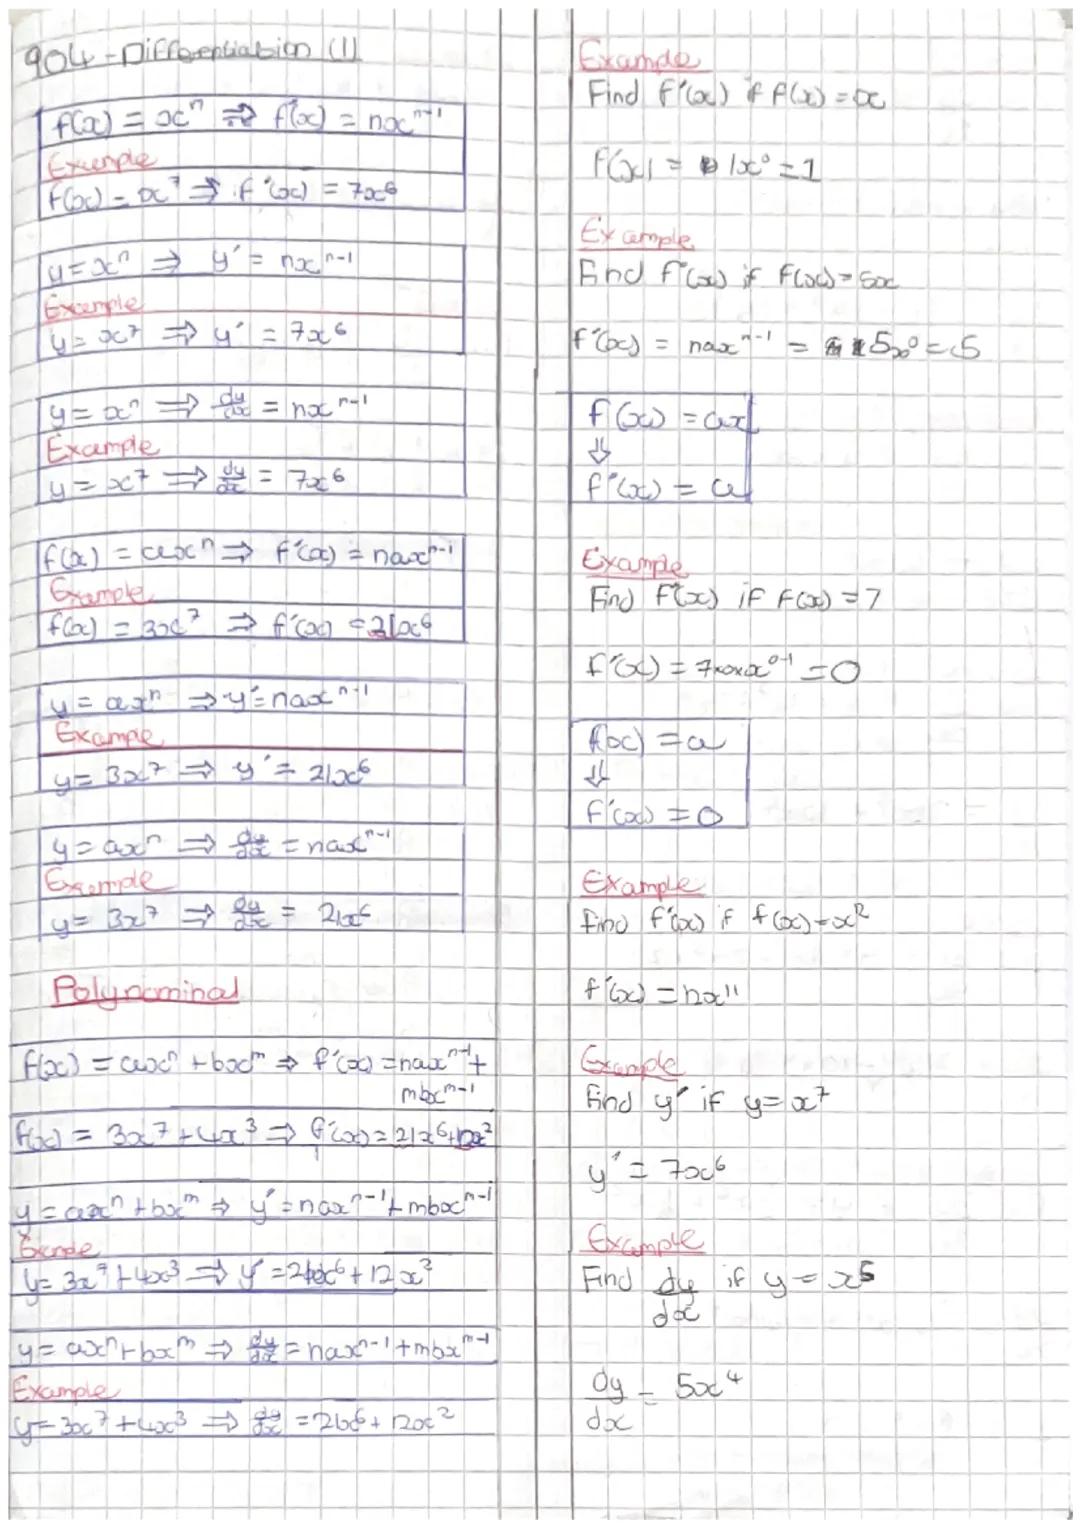 904 - Differentiation (1)
f(x) = xⁿ ⇒ f'(x) = nxⁿ⁻¹
Example
f(x) = x⁷ ⇒ f'(x) = 7x⁶
y = xⁿ ⇒ y' = nxⁿ⁻¹
Example
y = x⁷ ⇒ y' = 7x⁶
y = xⁿ ⇒ dy/dx = nxⁿ⁻¹
Example
y = x⁷ ⇒ dy/dx = 7x⁶
f(x) = axⁿ ⇒ f'(x) = naxⁿ⁻¹
Example
f(x) = 3x⁷ ⇒ f'(x) = 21x⁶
y = axⁿ ⇒ y' = naxⁿ⁻¹
Example
y = 3x⁷ ⇒ y' = 21x⁶
y = axⁿ ⇒ dy/dx = naxⁿ⁻¹
Example
y = 3x⁷ ⇒ dy/dx = 21x⁶
Polynominal
f(x) = axⁿ + bxᵐ ⇒ f'(x) = naxⁿ⁻¹ +
mbxᵐ⁻¹
f(x) = 3x⁷ + 4x³ ⇒ f'(x) = 21x⁶ + 12x²
y = axⁿ + bxᵐ ⇒ y' = naxⁿ⁻¹ + mbxᵐ⁻¹
Example
y = 3x⁷ + 4x³ ⇒ y' = 21x⁶ + 12x²
y = axⁿ + bxᵐ ⇒ dy/dx = naxⁿ⁻¹ + mbxᵐ⁻¹
Example
y = 3x⁷ + 4x³ ⇒ dy/dx = 21x⁶ + 12x²
Example
Find f'(x) if f(x) = x
f'(x) = 1x⁰ = 1
Example
Find f'(x) if f(x) = 5x
f'(x) = naxⁿ⁻¹ = 5x⁰ = 5
f(x) = ax
⇓
f'(x) = a
Example
Find f'(x) if f(x) = 7
f'(x) = 7×0×x⁰⁻¹ = 0
f(x) = a
⇓
f'(x) = 0
Example
find f'(x) if f(x) = x²
f'(x) = n2x¹¹
Example
Find y' if y = x⁷
y' = 7x⁶
Example
Find dy/dx if y = x⁵
dy/dx = 5x⁴